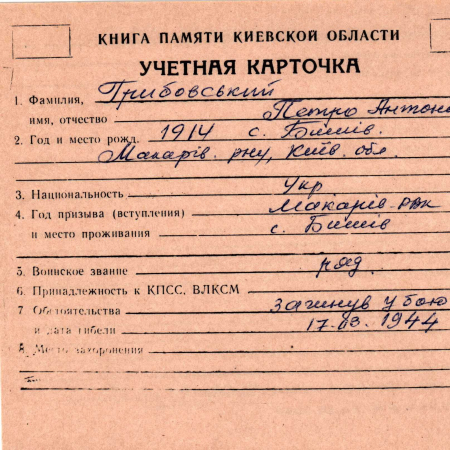 КНИГА ПАМЯТИ КИЕВСКОЙ ОБЛАСТИ
УЧЕТНАЯ КАРТОЧКА
1. Фамилия, Грибовський
имя, отчество Петро Антоно
2. Год и место рожд. 1914 с. Бишів.
Макарів. р-ну, Київ. обл.
3. Национальность Укр
4. Год призыва (вступления) Макарів РВК
и место проживания с. Бишів
5. Воинское звание ряд.
6. Принадлежность к КПСС, ВЛКСМ
7 Обстоятельства загинув у бою
и дата гибели 17.03.1944
8. Место захоронения